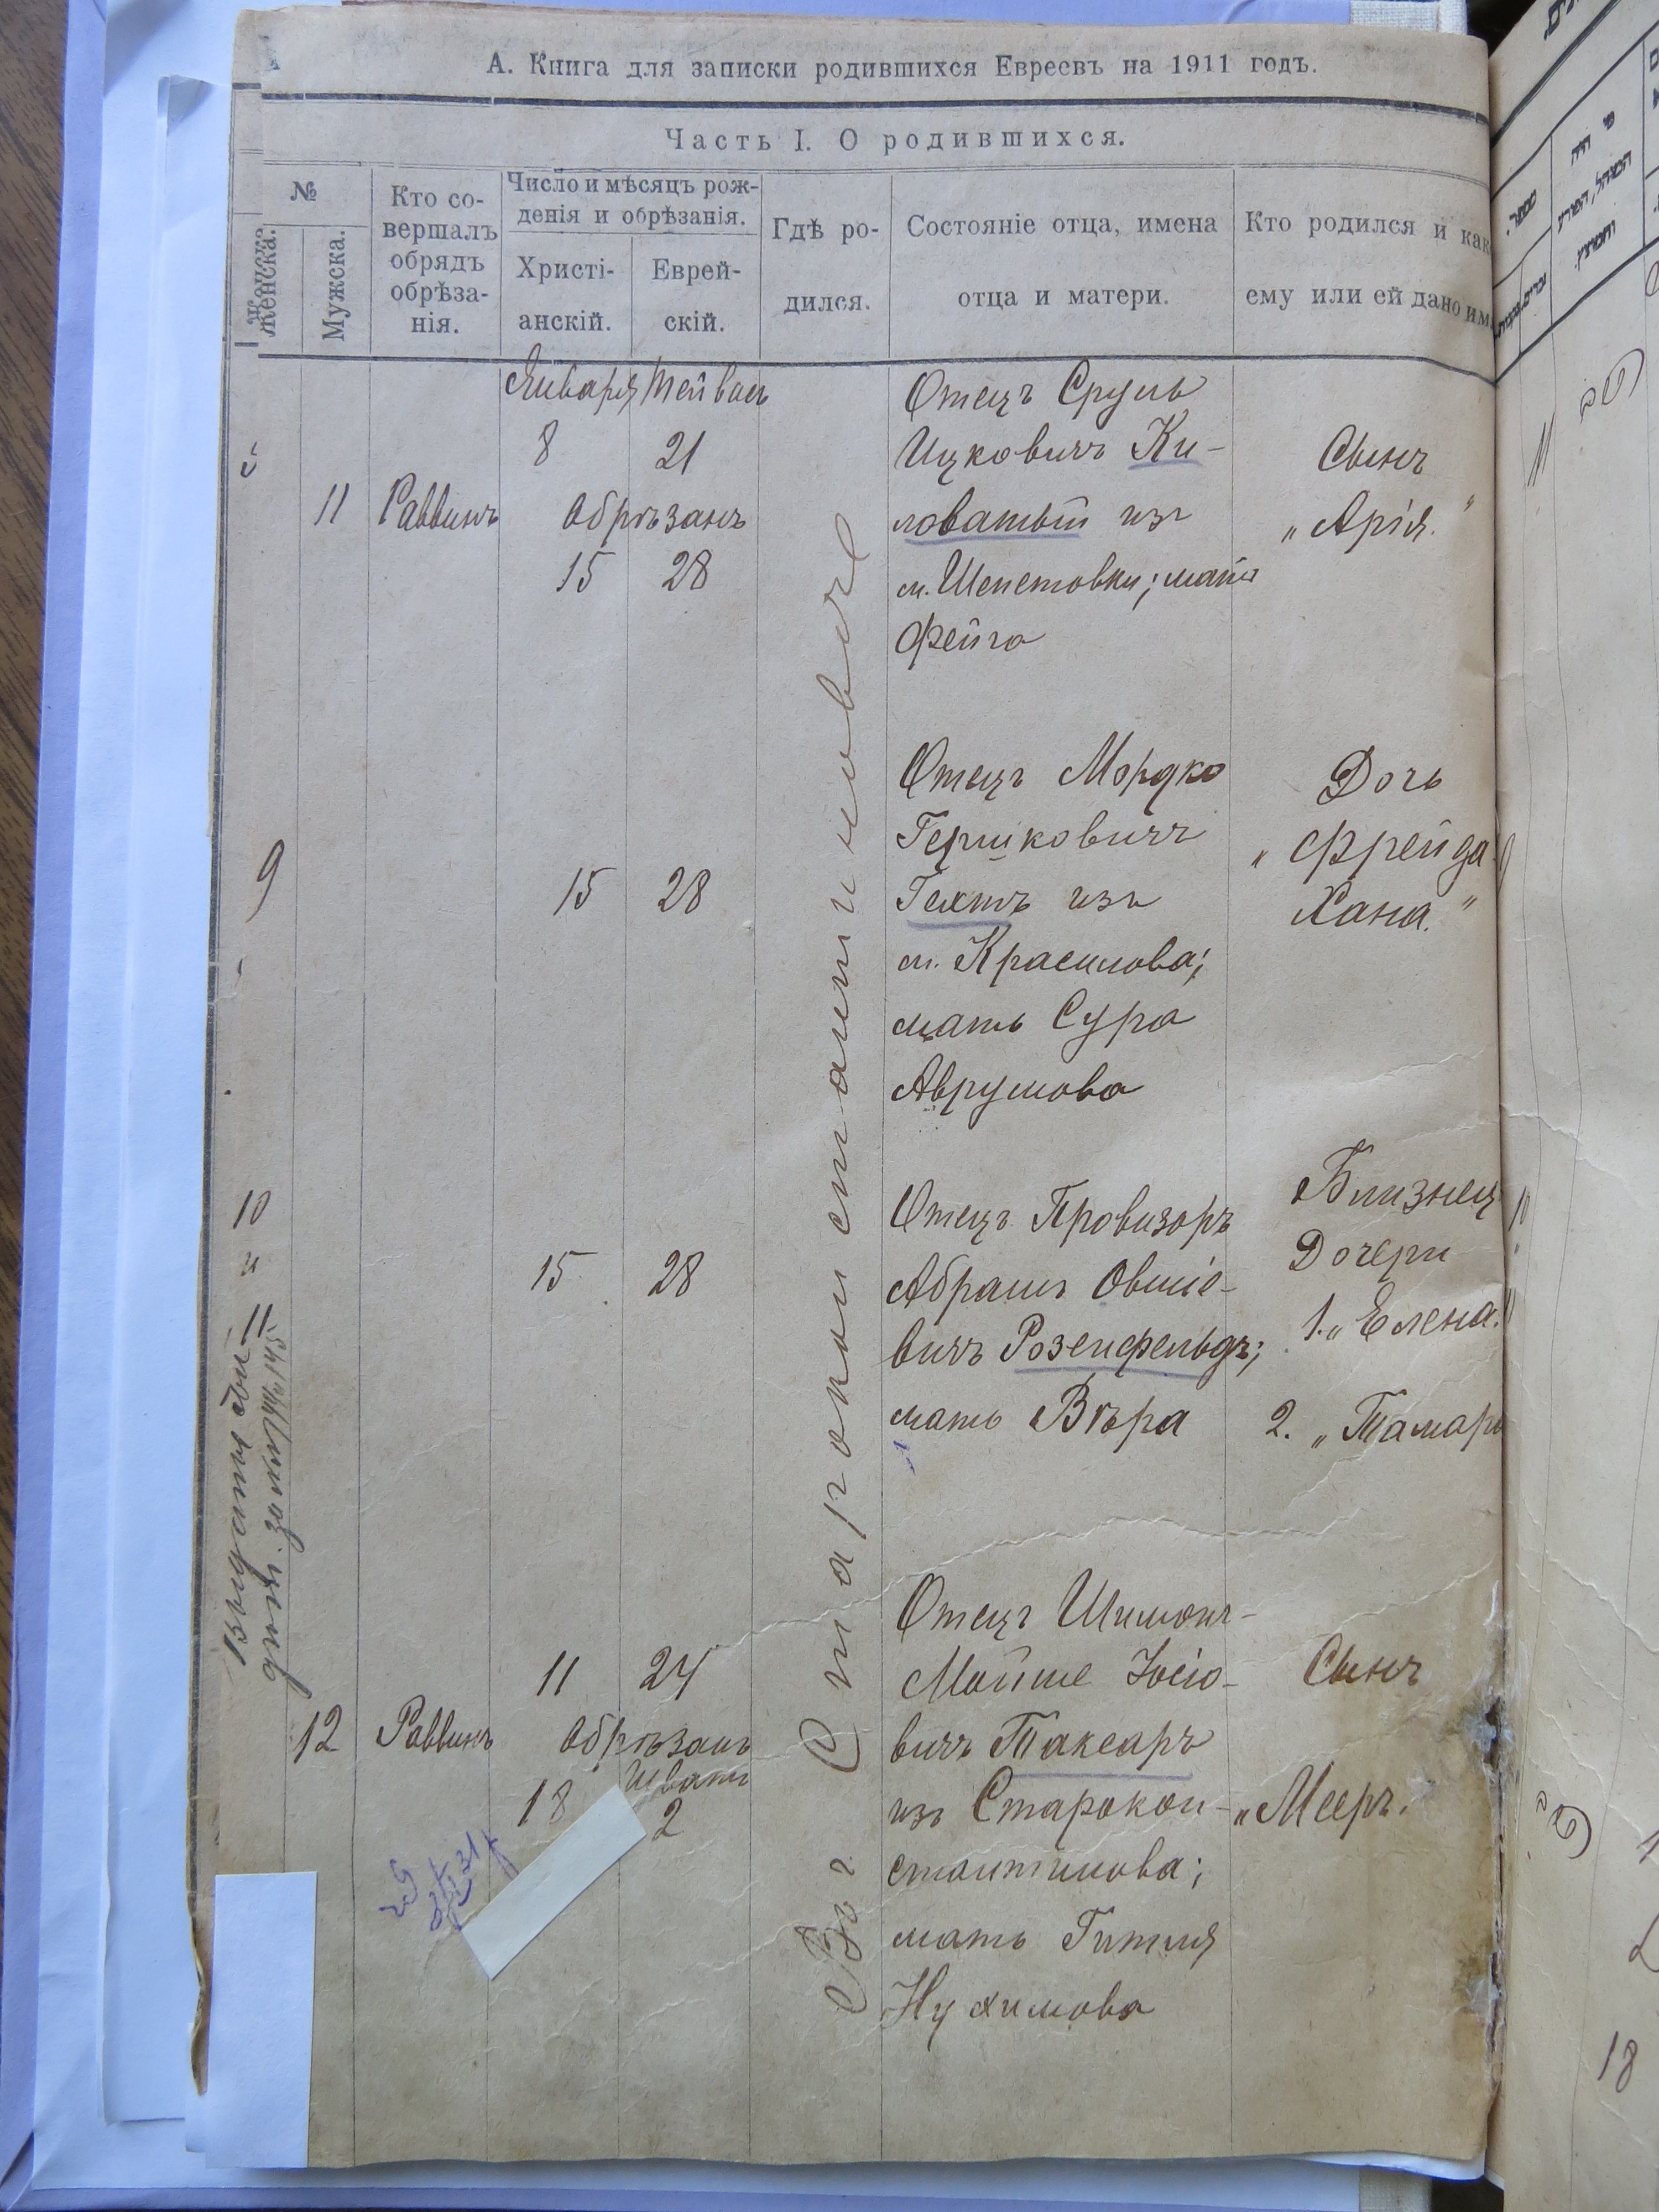 А. Книга для записки родившихся Евреевъ на 1911 годъ.
Часть I. О родившихся.
№
Женска.
Мужска.
Кто со-
вершалъ
обрядъ
обрѣза-
нія.
Число и мѣсяцъ рож-
денія и обрѣзанія.
Христі-
анскій.
Еврей-
скій.
Гдѣ ро-
дился.
Состояніе отца, имена
отца и матери.
Кто родился и как
ему или ей дано им
Января Тейвась
8 21
11 Раввинъ Обрѣзанъ
15 28
Отецъ Сруль
Ицковичъ Ки-
ловатый изъ
м. Шепетовки; мать
Фейга
Сынъ
„Арія."
9
15 28
Отецъ Мордко
Гершковичъ
Гехтъ изъ
м. Красилова;
мать Сура
Аврумова
Дочь
„Фрейда
Хана."
10
и
11
15 28
Отецъ Провизоръ
Абрамъ Овшіе-
вичъ Розенфельдъ;
мать Вѣра
Близнец
Дочери
1. „Елена."
2. „Тамара
11 24
12 Раввинъ Обрѣзанъ
Шватъ
18 2
Отецъ Шимонъ-
Мойше Іосіо-
вичъ Таксаръ
изъ Старокон-
стантинова;
мать Гитля
Нухимова
Сынъ
„Мееръ.
Въ г. Староконстантиновѣ
18